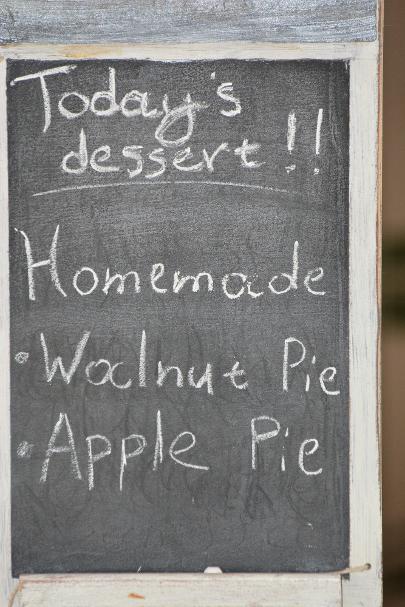 Today's
dessert!!
Homemade
• Walnut Pie
• Apple Pie